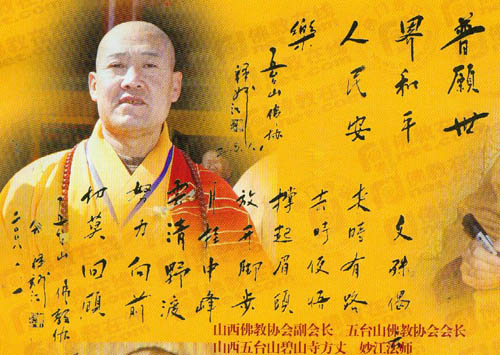 普願世
界和平
人民安
樂
五台山佛協
釋妙江
文殊偈
来時有路
去時便悟
撑起眉頭
放开脚步
月挂中峰
雲清野渡
努力向前
切莫回顧
五台山佛教協
会 釋妙江
二〇〇八.
山西佛教协会副会长 五台山佛教协会会长
山西五台山碧山寺方丈 妙江法师